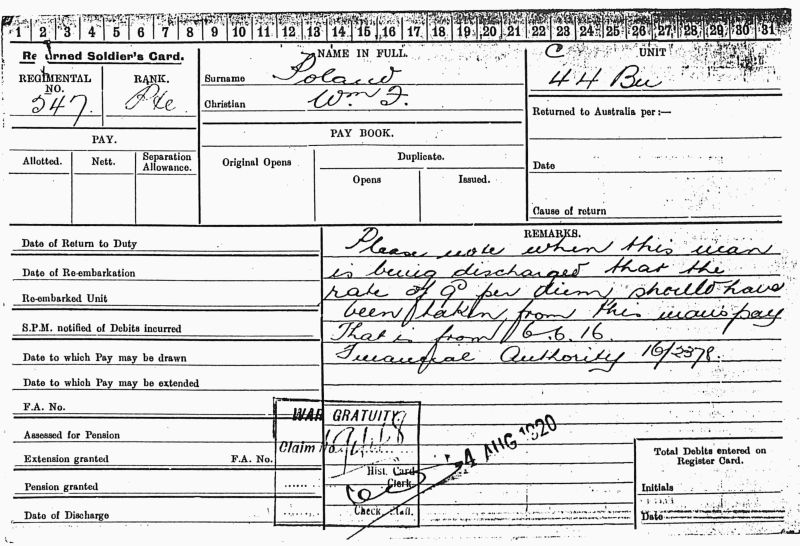 1 2 3 4 5 6 7 8 9 10 11 12 13 14 15 16 17 18 19 20 21 22 23 24 25 26 27 28 29 30 31
Returned Soldier's Card.
REGIMENTAL NO.
347.
RANK.
Pte
NAME IN FULL.
Surname Poland
Christian Wm F.
UNIT
C
44 Bn
PAY.
Allotted. Nett. Separation Allowance.
PAY BOOK.
Original Opens
Duplicate.
Opens Issued.
Returned to Australia per:—
Date
Cause of return
Date of Return to Duty
Date of Re-embarkation
Re-embarked Unit
S.P.M. notified of Debits incurred
Date to which Pay may be drawn
Date to which Pay may be extended
F.A. No.
Assessed for Pension
Extension granted F.A. No.
Pension granted
Date of Discharge
REMARKS.
Please note when this man
is being discharged that the
rate of per diem should have
been taken from this mans pay
That is from 6.6.16.
Financial Authority 16/2378.
WAR GRATUITY
Claim No.
Hist. Card
Clerk.
Check
4 AUG 1920
Total Debits entered on
Register Card.
Initials
Date